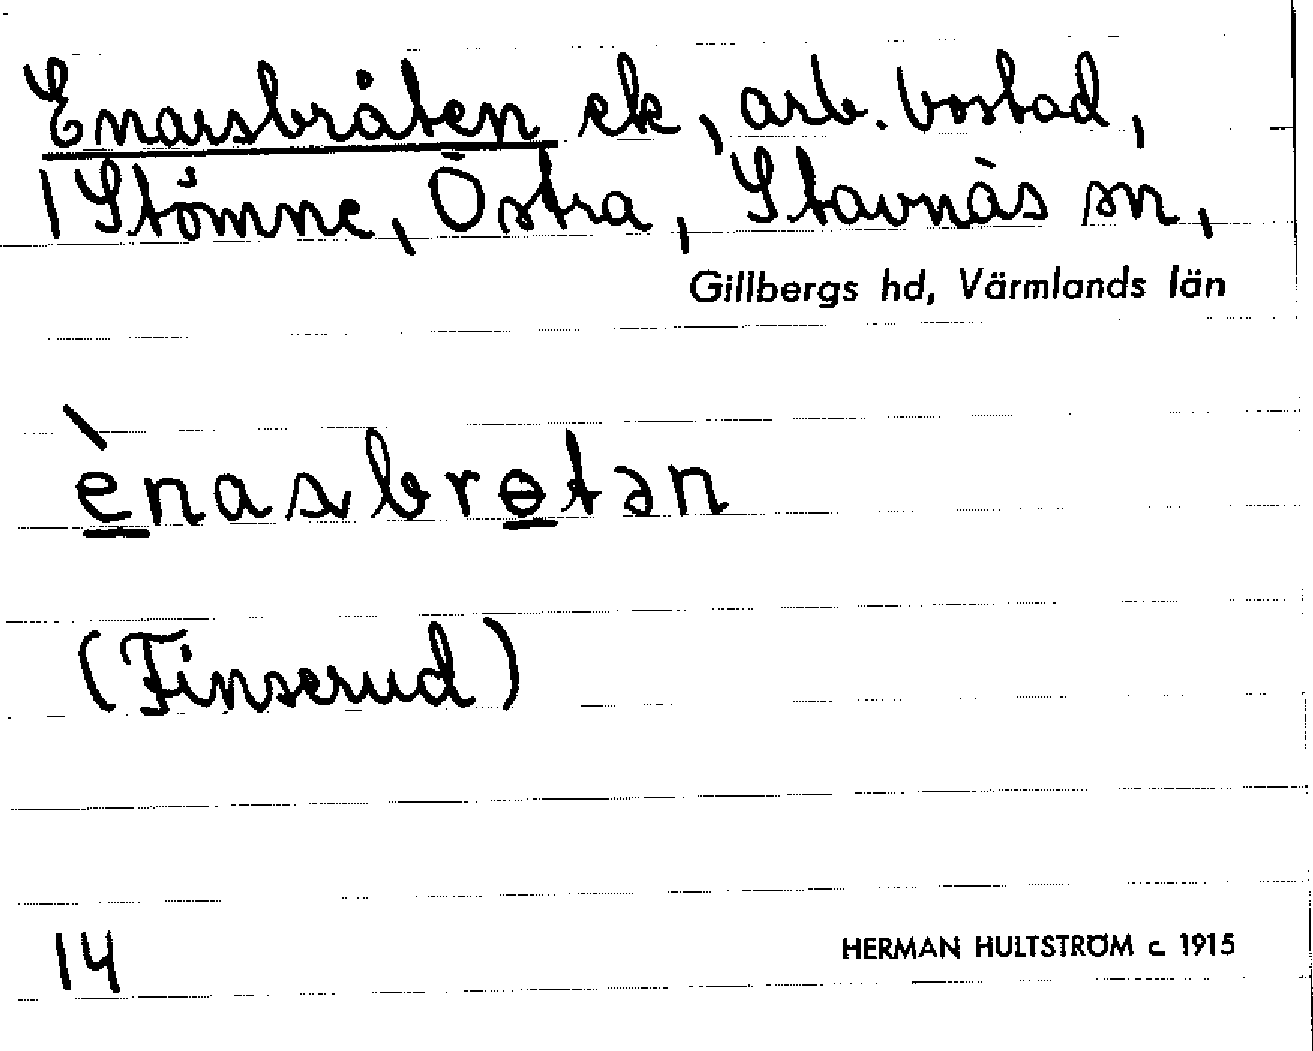 Enarsbråten ek, arb. bostad,
1 Stömne, Östra, Stavnäs sn,
Gillbergs hd, Värmlands län
ènasbrɵtən
(Finserud)
14
HERMAN HULTSTRÖM c. 1915